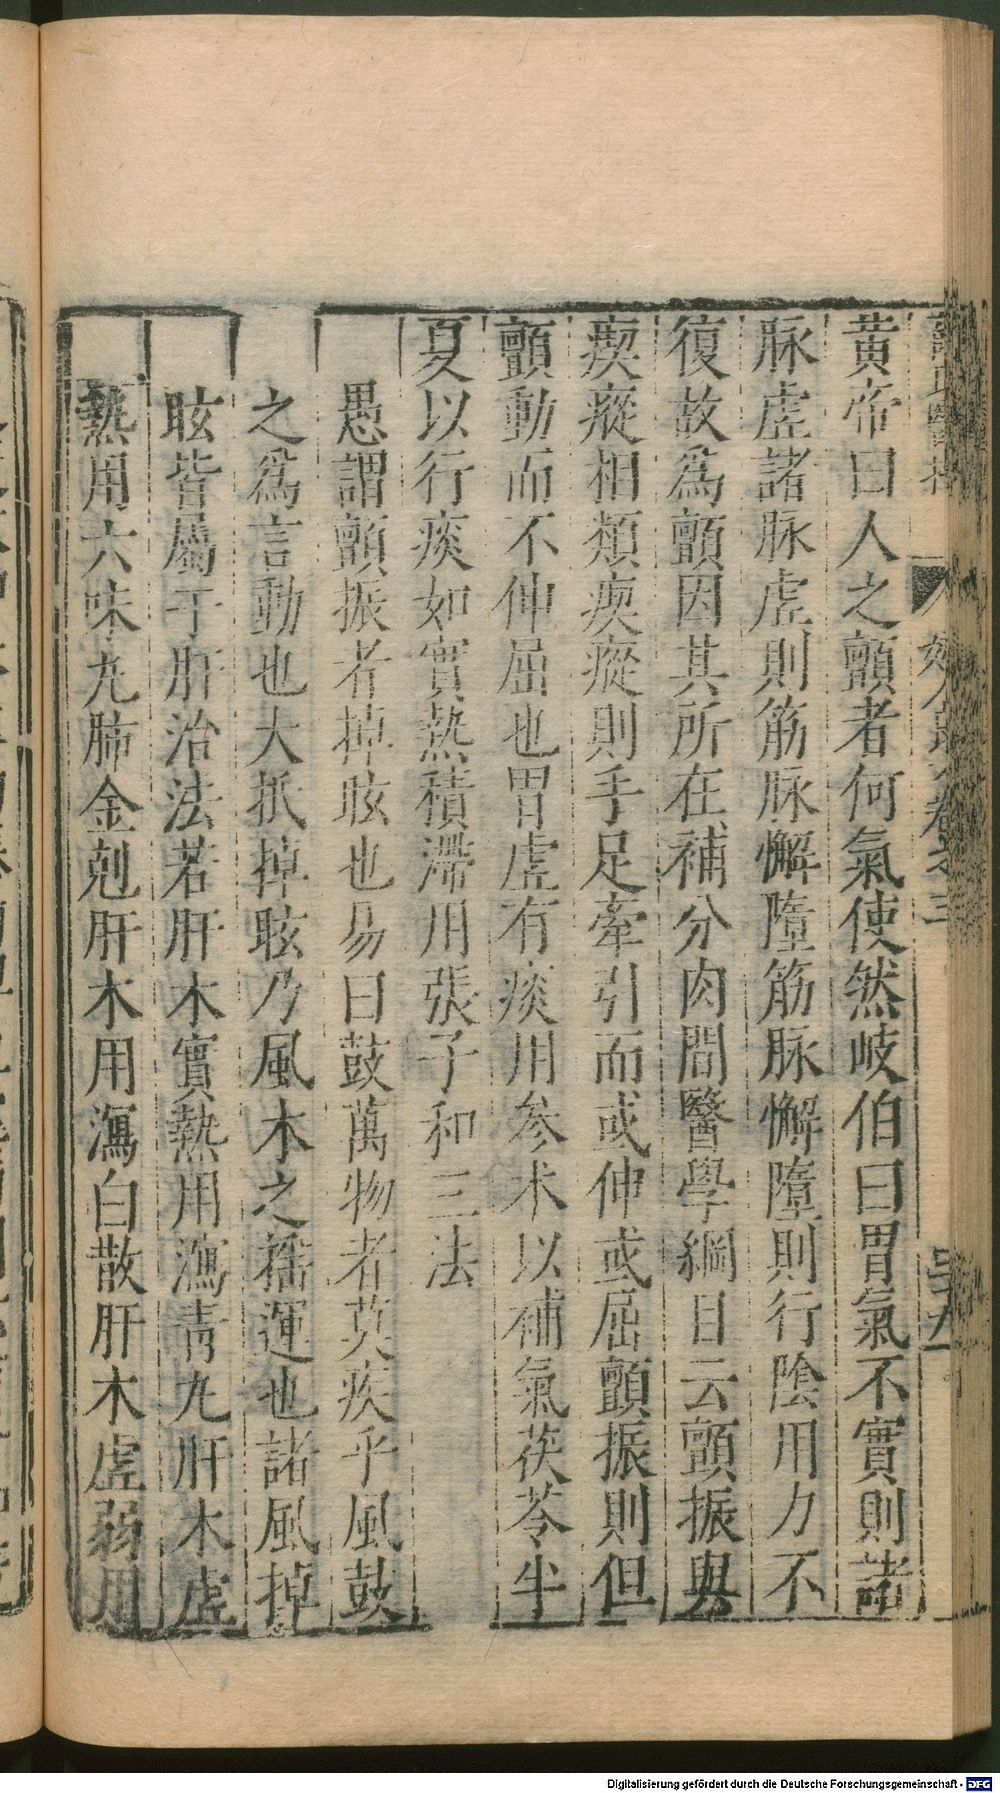 黃帝曰人之顫者何氣使然岐伯曰胃氣不實則諸
脉虛諸脉虛則筋脉懈墮筋脉懈墮則行陰用力不
復故爲顫因其所在補分肉間醫學綱目云顫振與
瘈瘲相類瘈瘲則手足牽引而或伸或屈顫振則但
顫動而不伸屈也胃虛有痰用參术以補氣茯苓半
夏以行痰如實熱積滯用張子和三法
愚謂顫振者掉眩也易曰鼓萬物者莫疾乎風鼓
之爲言動也大抵掉眩乃風木之搖運也諸風掉
眩皆屬于肝治法若肝木實熱用瀉青丸肝木虛
熱用六味丸肺金剋肝木用瀉白散肝木虛弱用
卷之三
三十九
Digitalisierung gefördert durch die Deutsche Forschungsgemeinschaft - DFG